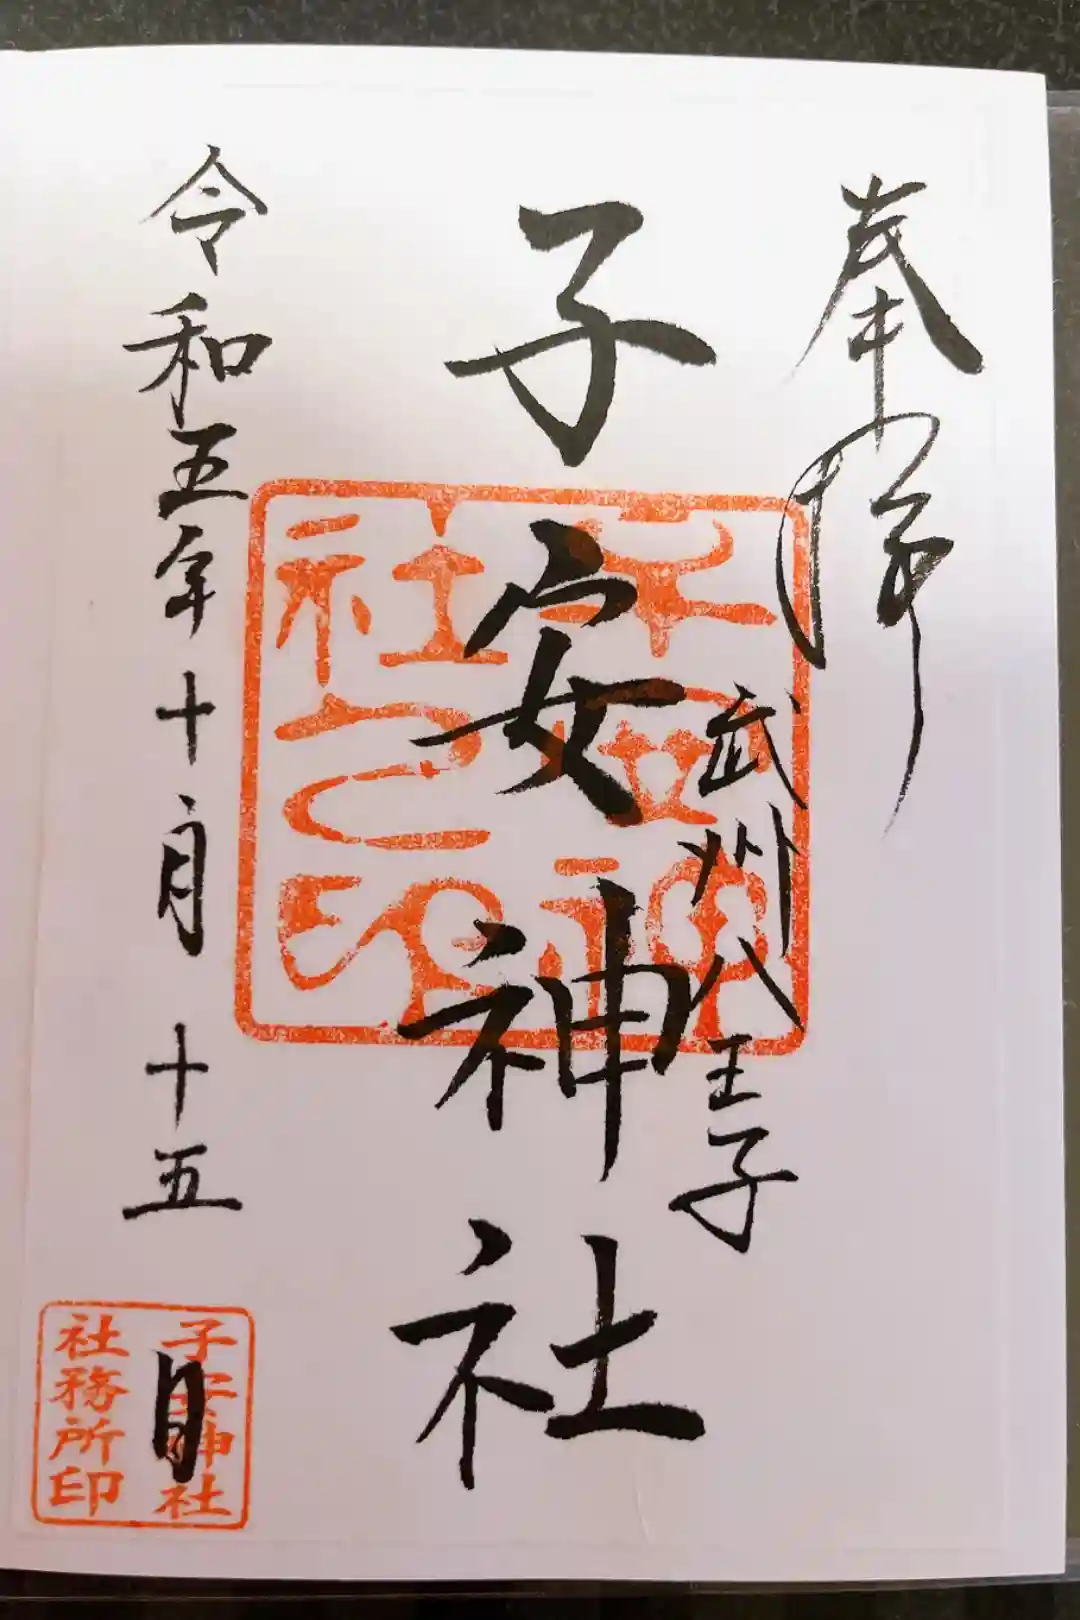 奉拝
武州八王子
子安神社
子安神社之印
令和五年十月十五日
子安神社
社務所印